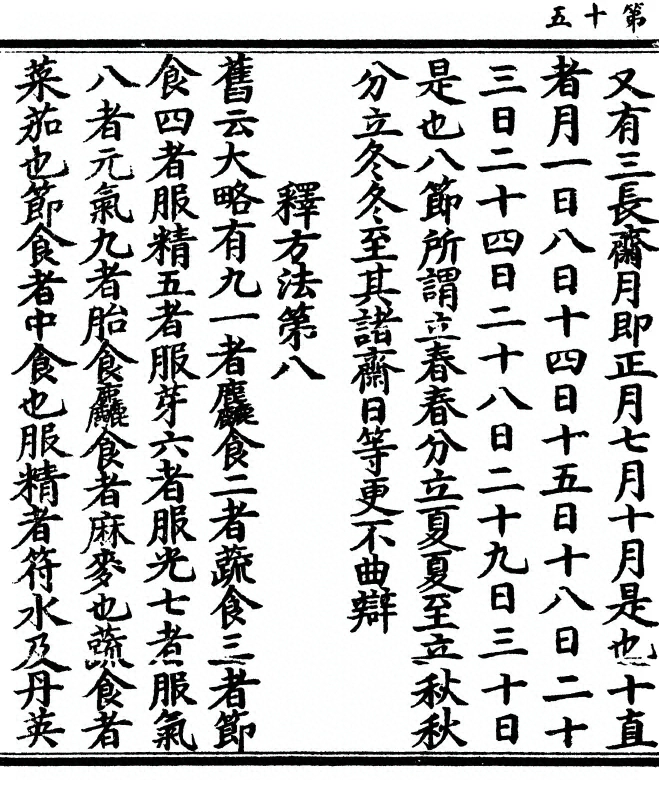 第十五
又有三長齋月即正月七月十月是也十直
者月一日八日十四日十五日十八日二十
三日二十四日二十八日二十九日三十日
是也八節所謂立春春分立夏夏至立秋秋
分立冬冬至其諸齋日等更不曲辯
釋方法第八
舊云大略有九一者麤食二者蔬食三者節
食四者服精五者服芽六者服光七者服氣
八者元氣九者胎食麤食者麻麥也蔬食者
菜茄也節食者中食也服精者符水及丹英